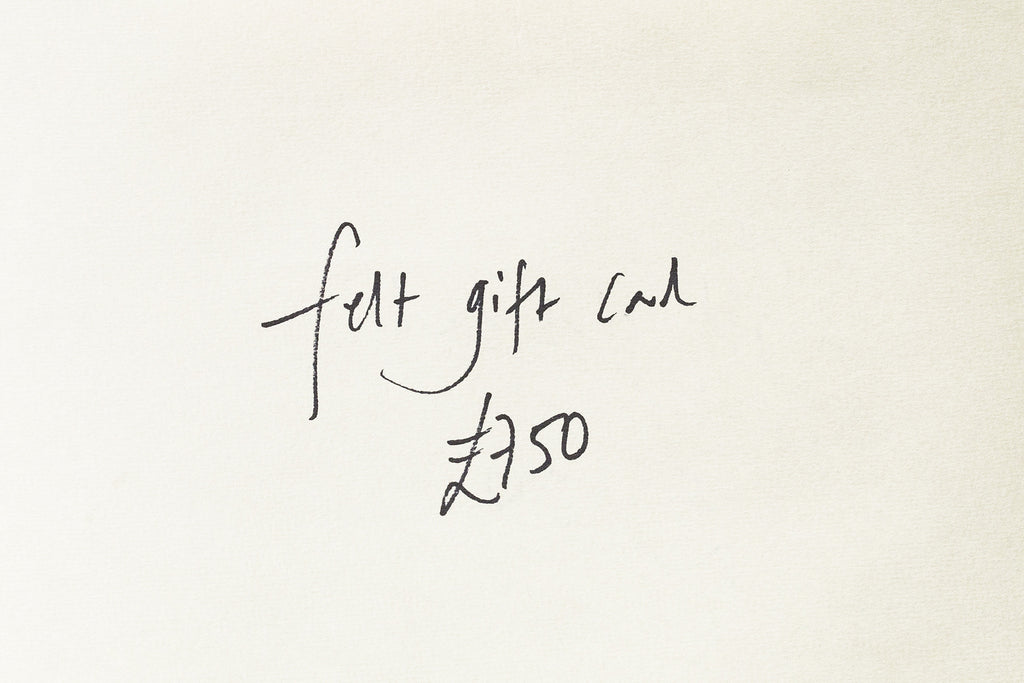 felt gift card
£750